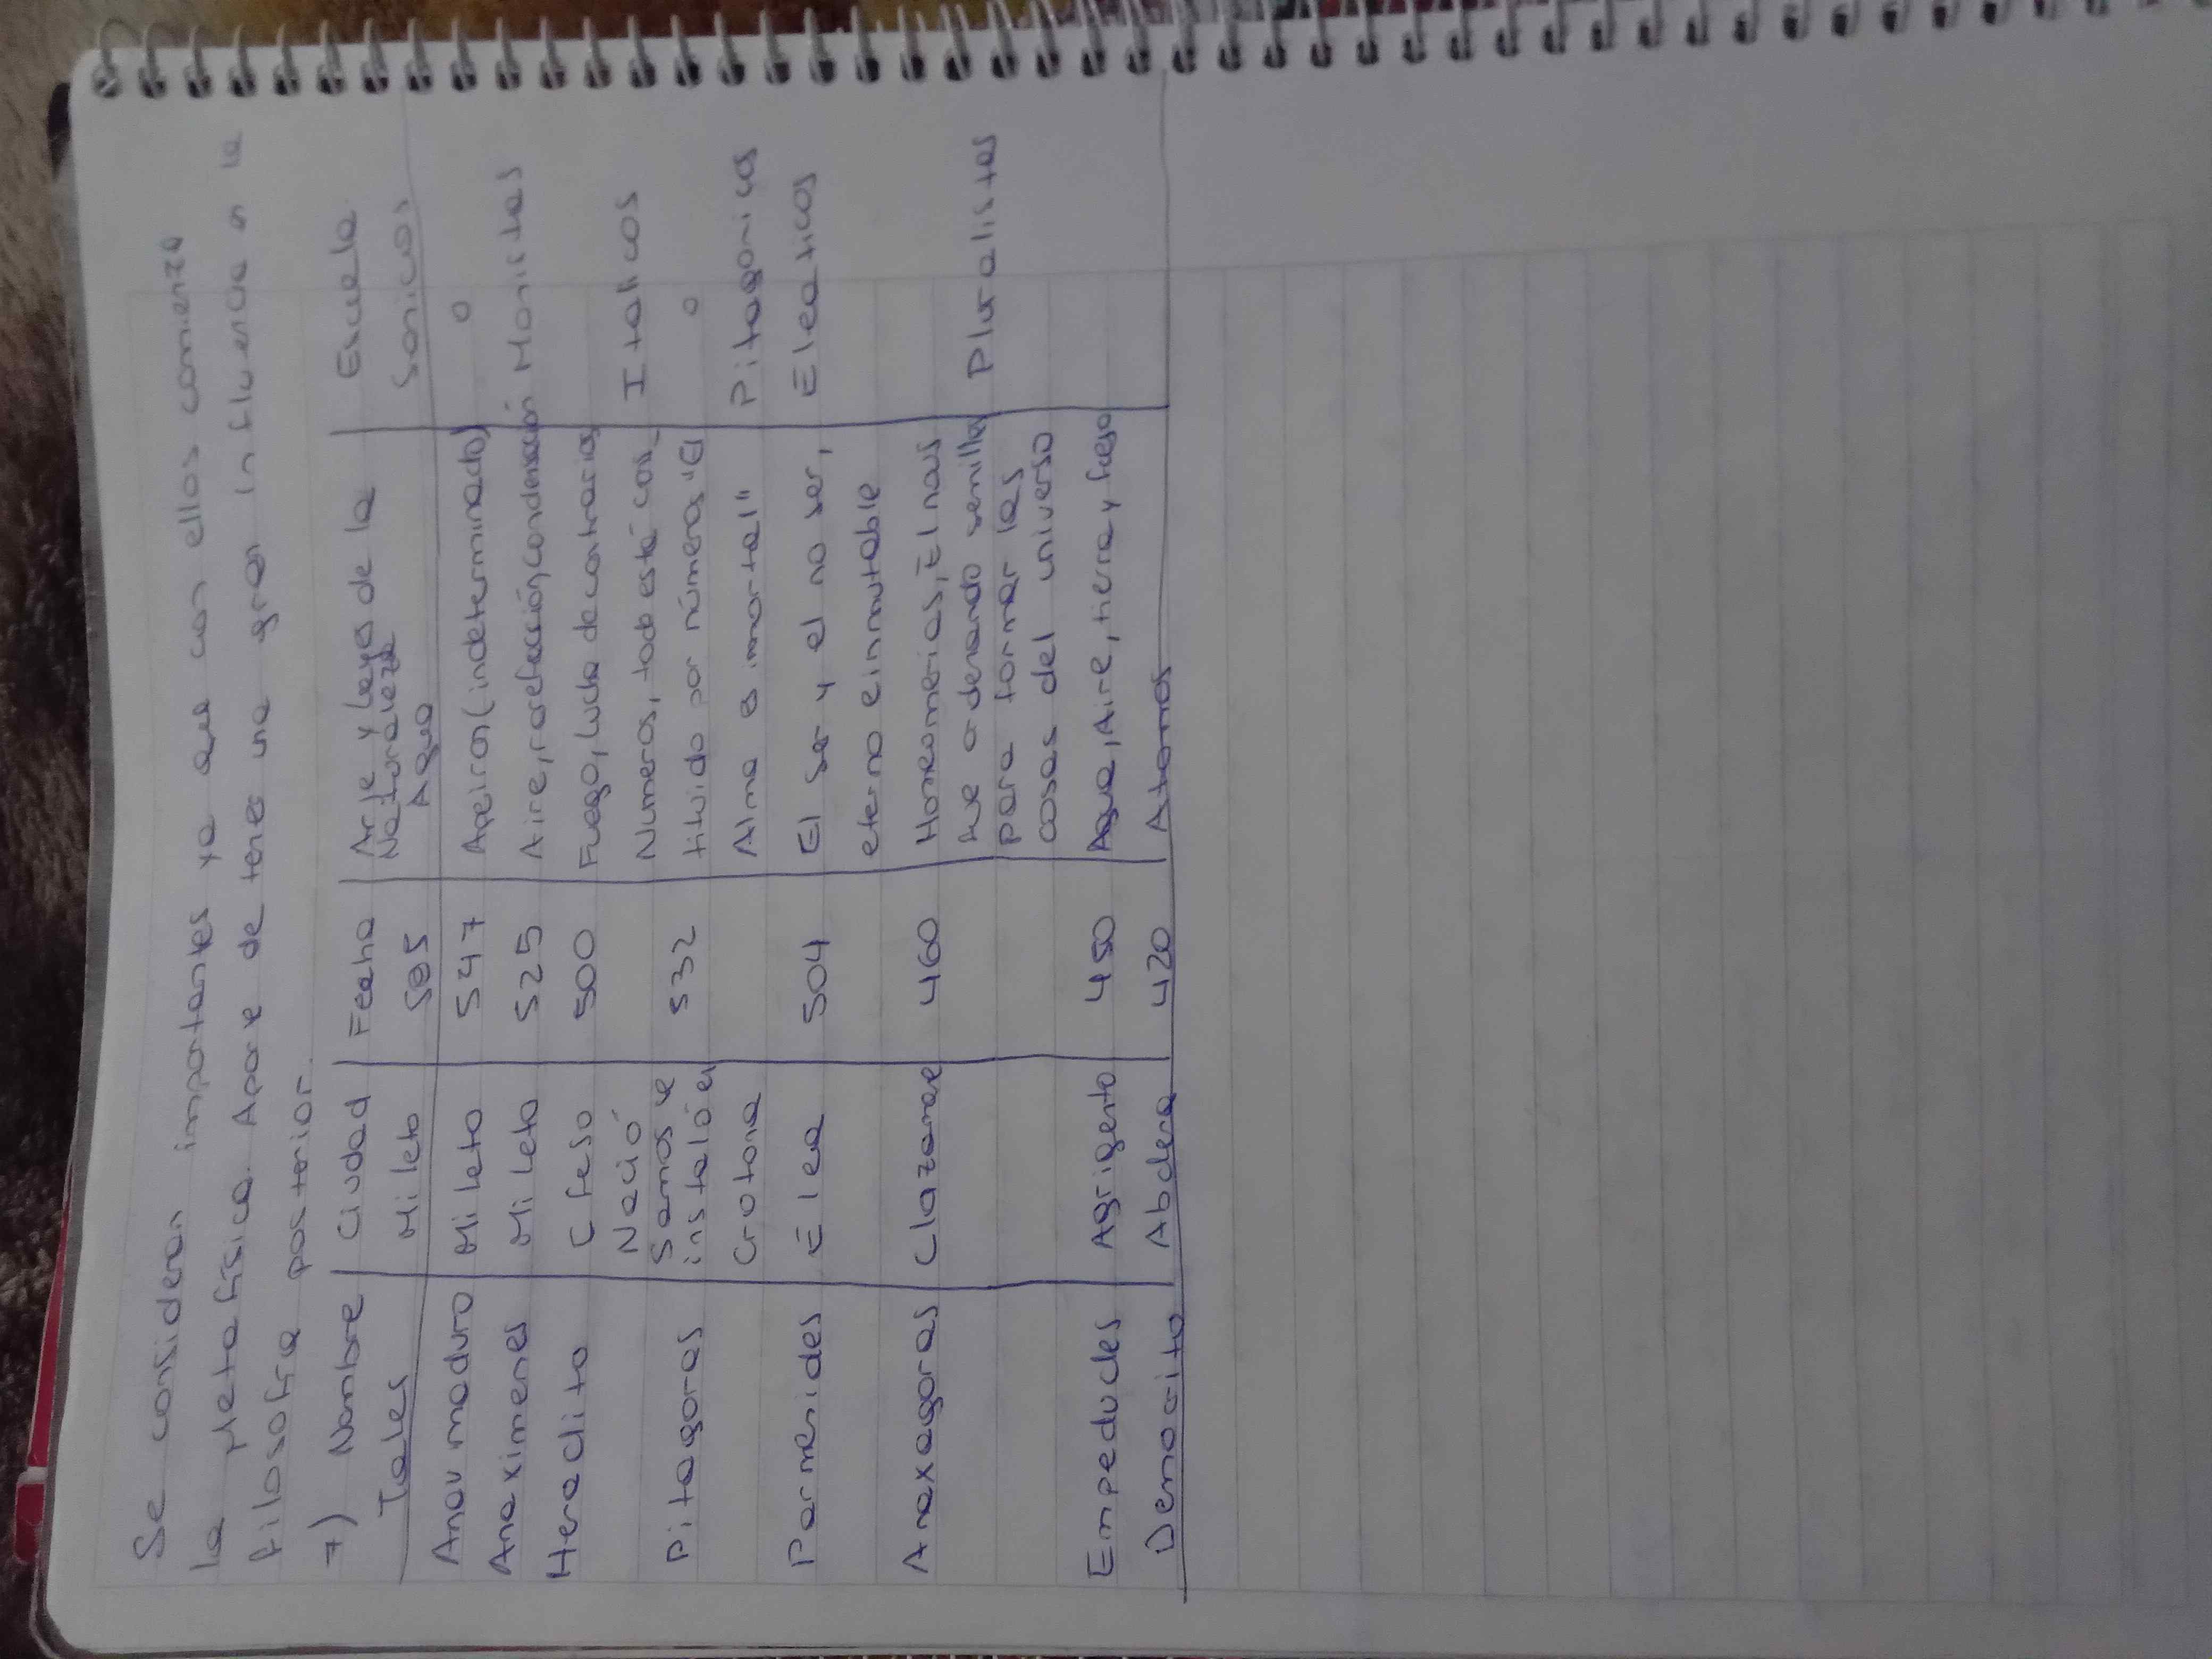 Se consideran importantes ya que con ellos comienza
la Metafísica. Aparte de tener una gran influencia en la
filosofía posterior.
7) Nombre Ciudad Fecha Arje y Leyes de la Naturaleza Escuela
Tales Mileto 585 Agua Jonicos
Mileto 547 Apeiron (indeterminado) o
Anaximenes Mileto 525 Aire, rarefacción, condensación Monistas
Heraclito Efeso 500 Fuego, lucha de contrarios
Nació
Samos se Numeros, todo está cons_ Italicos
Pitagoras instaló en 532 tituido por números "El o
Crotona Alma es inmortal" Pitagoricos
Parmenides Élea 504 El ser y el no ser, Eleaticos
eterno e inmutable
Anaxagoras Clazomene 460 Homeomerias, El nous
fue ordenando semillas Pluralistas
para formar las
cosas del universo
Empedocles Agrigento 450 Agua, Aire, tierra y fuego
Democrito Abdera 420 Atomos